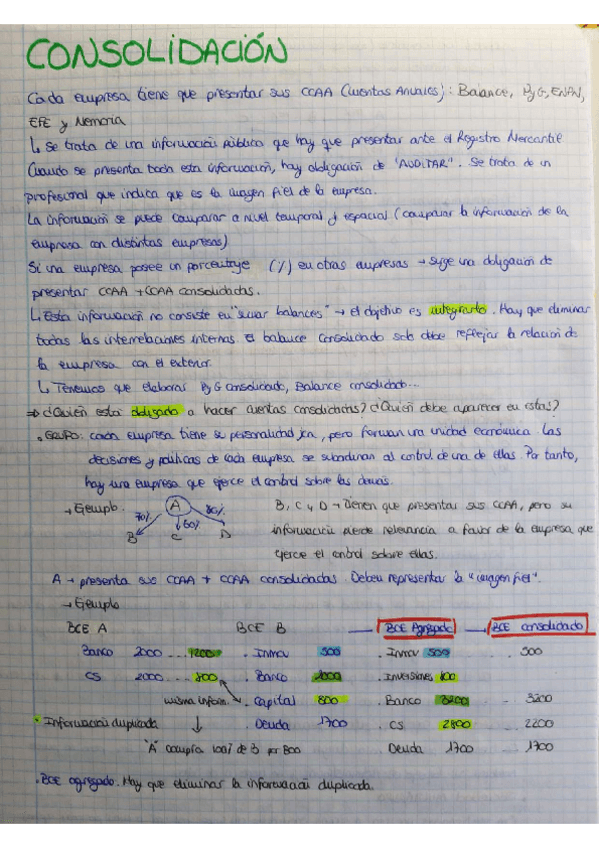 CONSOLIDACIÓN
Cada empresa tiene que presentar sus CCAA (Cuentas Anuales): Balance, PyG, ECPN,
EFE y Memoria
↳ Se trata de una información pública que hay que presentar ante el Registro Mercantil
Cuando se presenta toda esta información, hay obligación de "AUDITAR". Se trata de un
profesional que indica que es la imagen fiel de la empresa.
La información se puede comparar a nivel temporal y espacial (comparar la información de la
empresa con distintas empresas)
Si una empresa posee un porcentaje (%) en otras empresas → surge una obligación de
presentar CCAA + CCAA consolidadas.
↳ Esta información no consiste en "sumar balances" → el objetivo es integrarlo. Hay que eliminar
todas las interrelaciones internas. El balance consolidado solo debe reflejar la relación de
la empresa con el exterior.
↳ Tenemos que elaborar PyG consolidado, Balance consolidado...
⇒ ¿Quién está obligado a hacer cuentas consolidadas? ¿Quién debe aparecer en estas?
• GRUPO: cada empresa tiene su personalidad jca, pero forman una unidad económica. Las
decisiones y políticas de cada empresa se subordinan al control de una de ellas. Por tanto,
hay una empresa que ejerce el control sobre las demás.
→ Ejemplo. A
70% 60% 80%
B C D
B, C y D → tienen que presentar sus CCAA, pero su
información pierde relevancia a favor de la empresa que
ejerce el control sobre ellas.
A → presenta sus CCAA + CCAA consolidadas. Deben representar la "imagen fiel".
→ Ejemplo
BCE A BCE B → BCE Agregado → BCE consolidado
Banco 2000 ... 1200 . Inmov 500 . Inmov 500 . 500
CS 2000 ... 800 . Banco 2000 . Inversiones 800
misma inform. . Capital 800 . Banco 3200 . 3200
• Información duplicada ↓ . Deuda 1700 . CS 2800 . 2200
"A" compra 100% de B por 800 Deuda 1700 . 1700
. BCE agregado. Hay que eliminar la información duplicada.